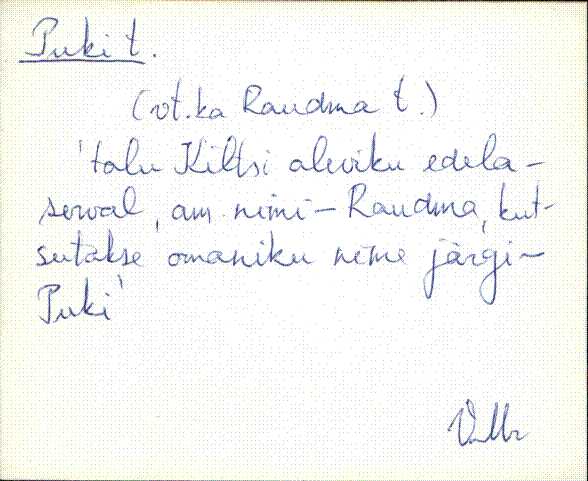 Puki t.
(vt. ka Raudma t.)
'talu Kiltsi aleviku edela-
serval, am. nimi – Raudma, kut-
sutakse omaniku nime järgi –
Puki'
VMr